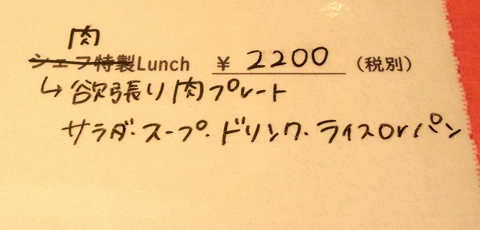 肉
シェフ特製Lunch ¥ 2200 (税別)
↳欲張り肉プレート
サラダ・スープ・ドリンク・ライスorパン